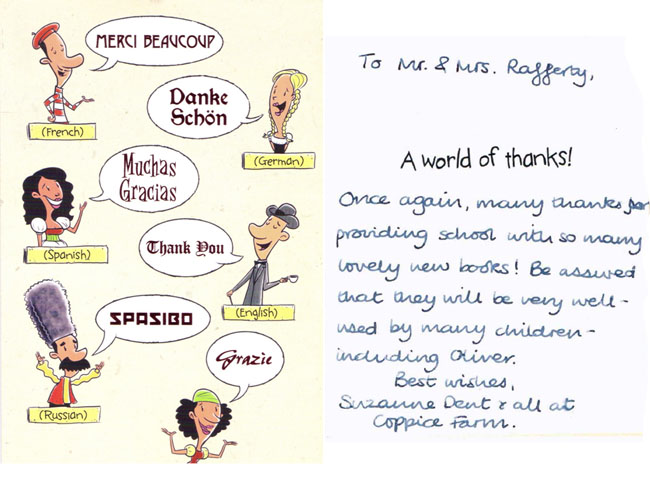 MERCI BEAUCOUP
(French)
Danke
Schön
(German)
Muchas
Gracias
(Spanish)
Thank You
(English)
SPASIBO
(Russian)
Grazie
To Mr. & Mrs. Rafferty,
A world of thanks!
Once again, many thanks for
providing school with so many
lovely new books! Be assured
that they will be very well-
used by many children-
including Oliver.
Best wishes,
Suzanne Dent & all at
Coppice Farm.